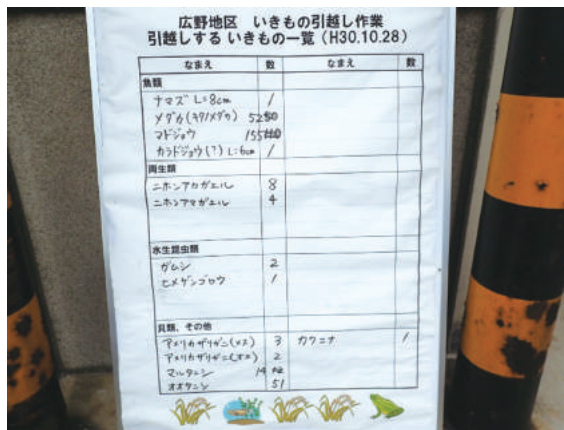 広野地区 いきもの引越し作業
引越しする いきもの一覧（H30.10.28）
なまえ 数 なまえ 数
魚類
ナマズ L=8cm 1
メダカ(キタノメダカ)
マドジョウ
カラドジョウ(?) L:6cm 1
両生類
ニホンアカガエル 8
ニホンアマガエル 4
水生昆虫類
ガムシ 2
ヒメゲンゴロウ 1
貝類、その他
アメリカザリガニ(メス) 3 カワニナ 1
アメリカザリガニ(オス) 2
マルタニシ 14
オオタニシ 51